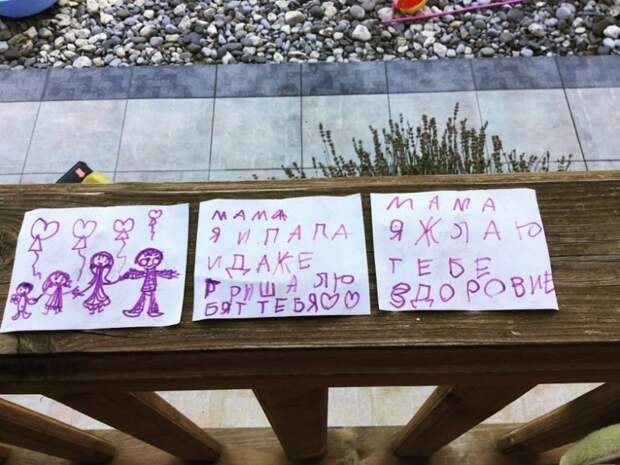 МАМА
Я И ПАПА
И ДАЖЕ
ГРИША ЛЮ
БЯТ ТЕБЯ♡♡
МАМА
Я ЖЛАЮ
ТЕБЕ
ЗДОРОВИЕ